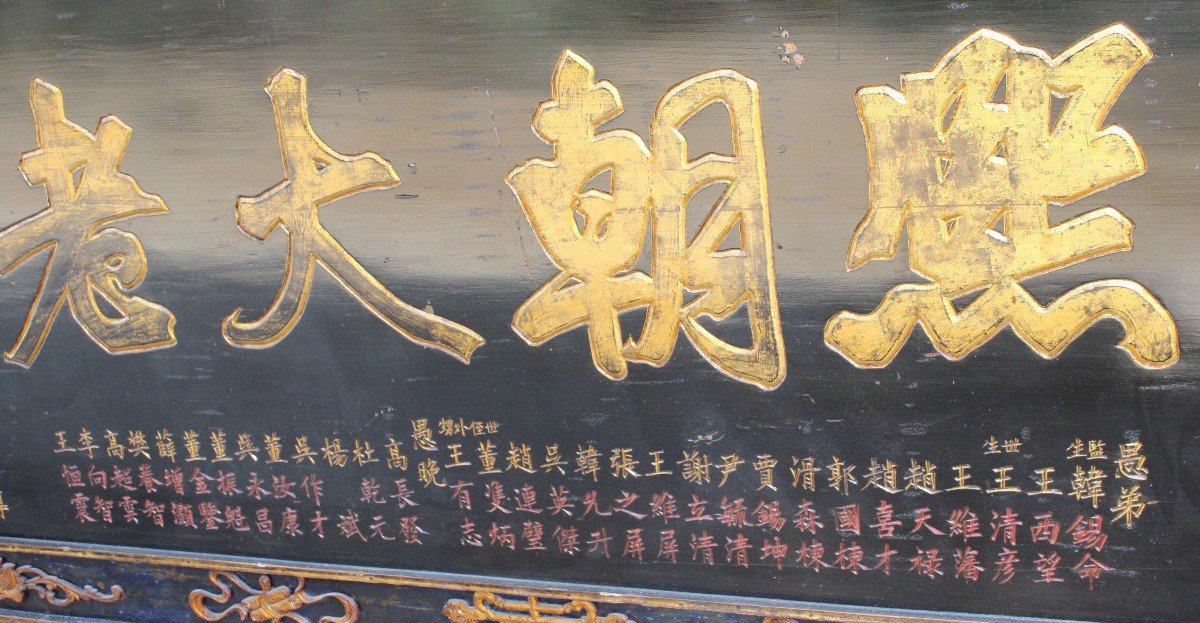 熙朝大老
愚弟
監生韓錫命
王西望
世生王清彦
王維藩
趙天禄
趙喜才
郭國棟
滑森棟
賈錫坤
尹毓清
謝立清
王維屏
張之屏
韓允升
吳英傑
趙連璧
董雙炳
世侄外甥王有志
愚晚
高長發
杜乾元
楊斌
吳作才
董汝康
吳永昌
董振魁
董金鑒
薛增灝
樊養智
高起雲
李向智
王恒